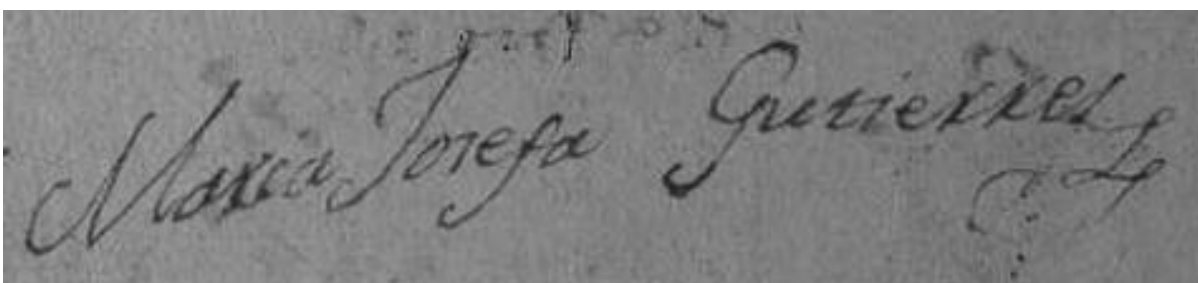 Maria Josefa Gutierrez